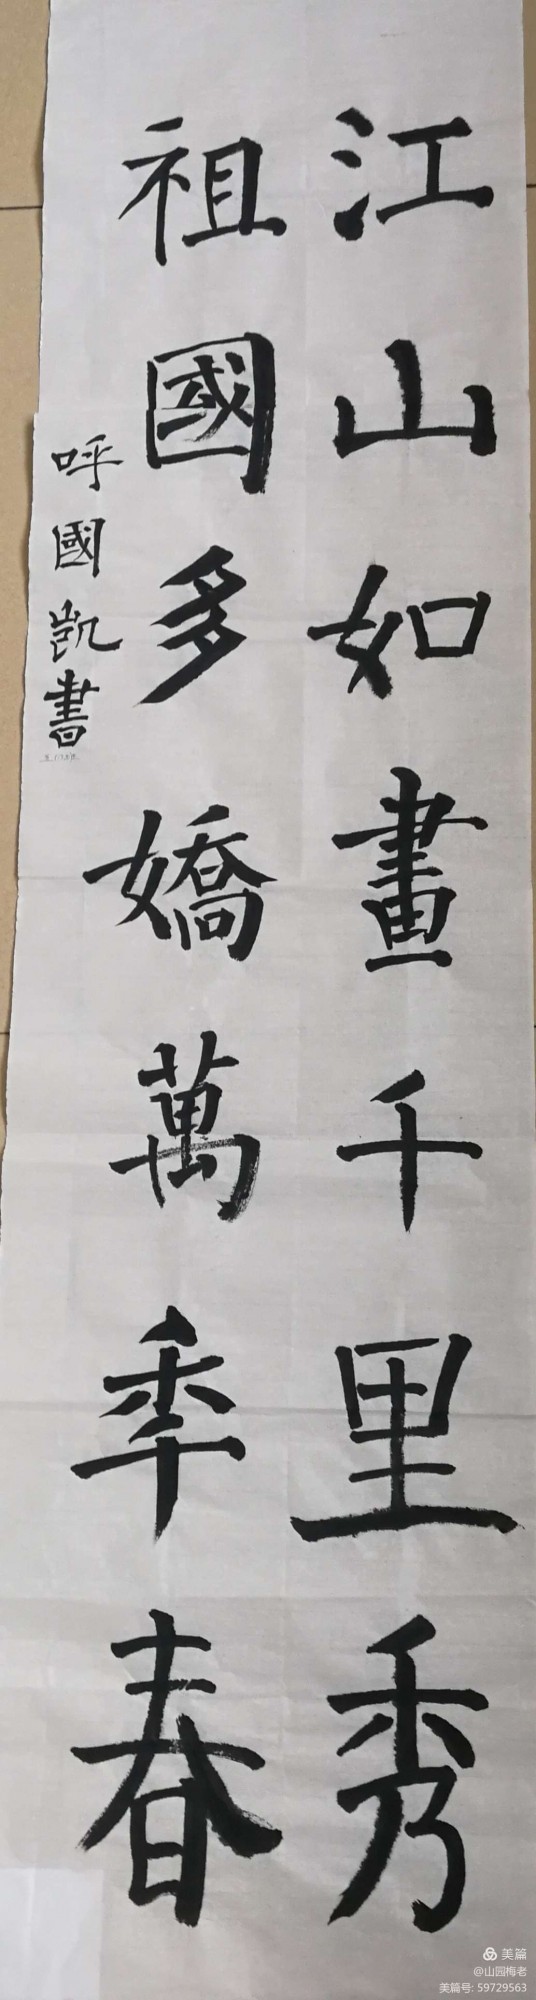 江山如畫千里秀
祖國多嬌萬秊春
呼國凱書
美篇
@山园梅老
美篇号: 59729563